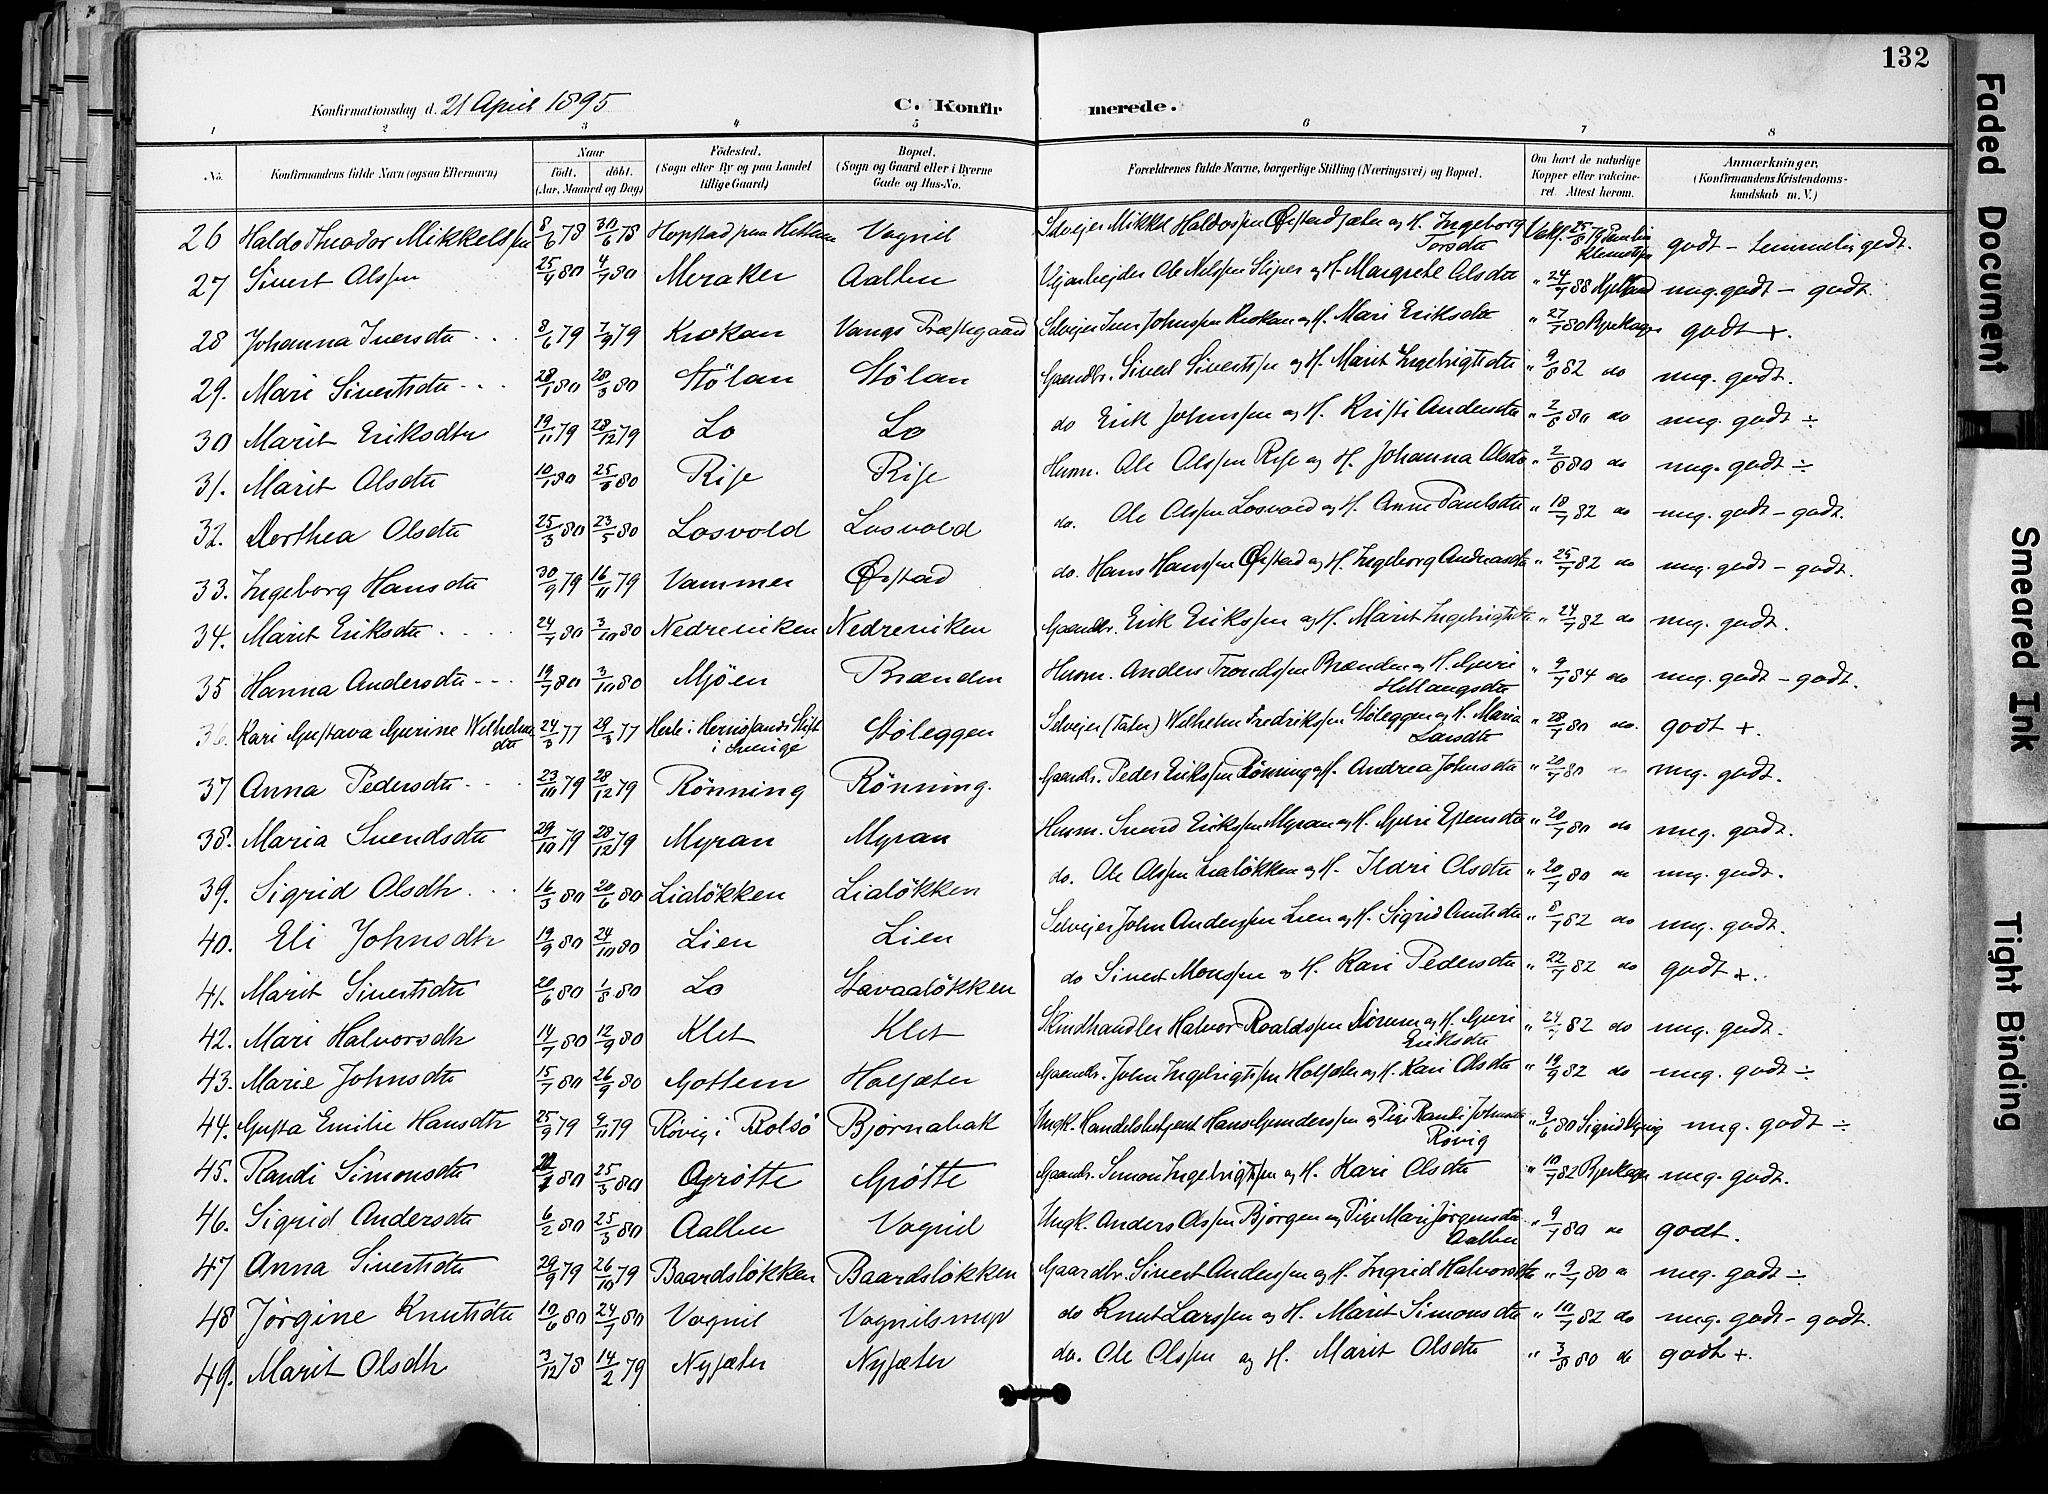 132
Konfirmationsdag d. 21 April 1895 C. Konfirmerede.
1 2 3 4 5 6 7 8
No. Konfirmandens fulde Navn (ogsaa Efternavn) Naar födt. döbt. (Aar, Maaned og Dag) Födested. (Sogn eller By og paa Landet tillige Gaard) Bopæl. (Sogn og Gaard eller i Byerne Gade og Hus-No. Forældrenes fulde Navne, borgerlige Stilling (Næringsvei) og Bopæl. Om havt de naturlige Kopper eller vaccineret. Attest herom. Anmærkninger. (Konfirmandens Kristendomskundskab m. V.)
26 Haldo Theodor Mikkelssen 8/6 78 30/6 78 Hopstad paa Vognil Selveier Mikkel Haldossen Ørstadsæter og H. Ingeborg Torsdtr godt - temmelig godt.
27 Sivert Olssen 25/4 80 4/7 80 Meraker Aalbu Ole Nilssen Sliper og H. Margrete Olsdtr " 24/7 88 mg. godt - godt
28 Johanna Iversdtr 8/6 79 7/9 79 Krokan Vangs Præstegaard Selveier Iver Johnssen Krokan og H. Mari Eriksdtr " 27/7 80 godt +.
29. Mari Sivertsdtr 28/1 80 28/3 80 Stölan Stölan Gaardbr. Sivert Sivertssen og H. Marit Ingebrigtsdtr " 9/8 82 do mg. godt.
30 Marit Eriksdtr 19/11 79 28/12 79 Lo Lo do Erik Johnssen og H. Kristi Andersdtr " 2/8 80 do mg. godt ÷
31. Marit Olsdtr 10/1 80 25/3 80 Rise Rise Husm. Ole Olssen Rise og H. Johanna Olsdtr " 2/8 80 do mg. godt ÷
32. Dorthea Olsdtr 25/3 80 23/5 80 Losvold Losvold do. Ole Olssen Losvold og H. Anne Paulsdtr " 18/7 82 do mg. godt - godt.
33. Ingeborg Hansdtr 30/9 79 16/11 79 Vammer Ørstad do. Hans Hanssen Ørstad og H. Ingeborg Andreasdtr " 25/7 82 do mg. godt - godt.
34. Marit Eriksdtr 24/7 80 3/10 80 Nedreviken Nedreviken Gaardbr. Erik Erikssen og H. Marit Ingebrigtsdtr " 24/7 82 do mg. godt.
35 Hanna Andersdtr 19/7 80 3/10 80 Mjöen Brænden Husm. Anders Trondssen Brænden og H. Guri " 9/7 84 do mg. godt - godt.
36. Kari Gustava Gurine Wilhelmsdtr 24/3 77 29/3 77 i Sverige Stöleggen Selveier (Tater) Wilhelm Fredrikssen Stöleggen og H. Maria Larsdtr " 28/7 80 do. godt +.
37 Anna Pedersdtr 23/10 79 28/12 79 Rönning Rönning. Gaardbr. Peder Erikssen Rönning og H. Andrea Johnsdtr " 20/7 80 do mg. godt.
38. Maria Svendsdtr 29/10 79 28/12 79 Myran Myran Husm. Svend Erikssen Myran og H. Guri Estensdtr " 20/7 80 do mg. godt.
39. Sigrid Olsdtr 16/3 80 20/6 80 Lialökken Lialökken do. Ole Olssen Lialökken og H. Ildri Olsdtr " 20/7 80 do mg. godt.
40. Eli Johnsdtr 19/9 80 24/10 80 Lien Lien Selveier John Anderssen Lien og H. Sigrid Arntsdtr " 8/7 82 do mg. godt.
41. Marit Sivertsdtr 20/6 80 1/8 80 Lo Stavaalökken do Sivert Monssen og H. Kari Pedersdtr " 22/7 82 do godt +.
42. Mari Halvorsdtr 14/7 80 12/9 80 Klet Klet Skindhandler Halvor Roaldssen Dörum og H. Guri Eriksdtr " 24/7 82 do mg. godt.
43. Marie Johnsdtr 15/7 80 26/9 80 Gottem Holsæter Gaardbr. John Ingebrigtssen Holsæter og H. Kari Olsdtr " 19/9 82 do mg. godt ÷
44. Gusta Emilie Hansdtr 25/9 79 9/11 79 Rövig i Rolsö Bjørnabak Ungk. Handelsbetjent Hans Gunderssen og Pige Randi Johnsdtr Røvig " 9/6 80 mg. godt ÷
45. Randi Simonsdtr 80 25/3 80 Grötte Grötte Gaardbr. Simon Ingebrigtssen og H. Kari Olsdtr " 10/7 82 mg. godt.
46. Sigrid Andersdtr 6/2 80 25/3 80 Aalbu Vognil Ungk. Anders Olssen Bjørgen og Pige Mari Jørgensdtr Aalbu " 9/7 80 do godt.
47 Anna Sivertsdtr 29/9 79 26/10 79 Baardsløkken Baardsløkken Gaardbr. Sivert Anderssen og H. Ingrid Halvorsdtr " 9/7 80 do mg. godt ÷
48 Jørgine Knutsdtr 10/6 80 24/7 80 Vognil Vognilsmyr do Knut Larssen og H. Marit Simonsdtr " 10/7 82 do mg. godt - godt.
49. Marit Olsdtr 3/12 78 14/2 79 Nysæter Nysæter do. Ole Olssen og H. Marit Olsdtr " 3/8 80 do godt +.
Faded Document
Smeared Ink
Tight Binding